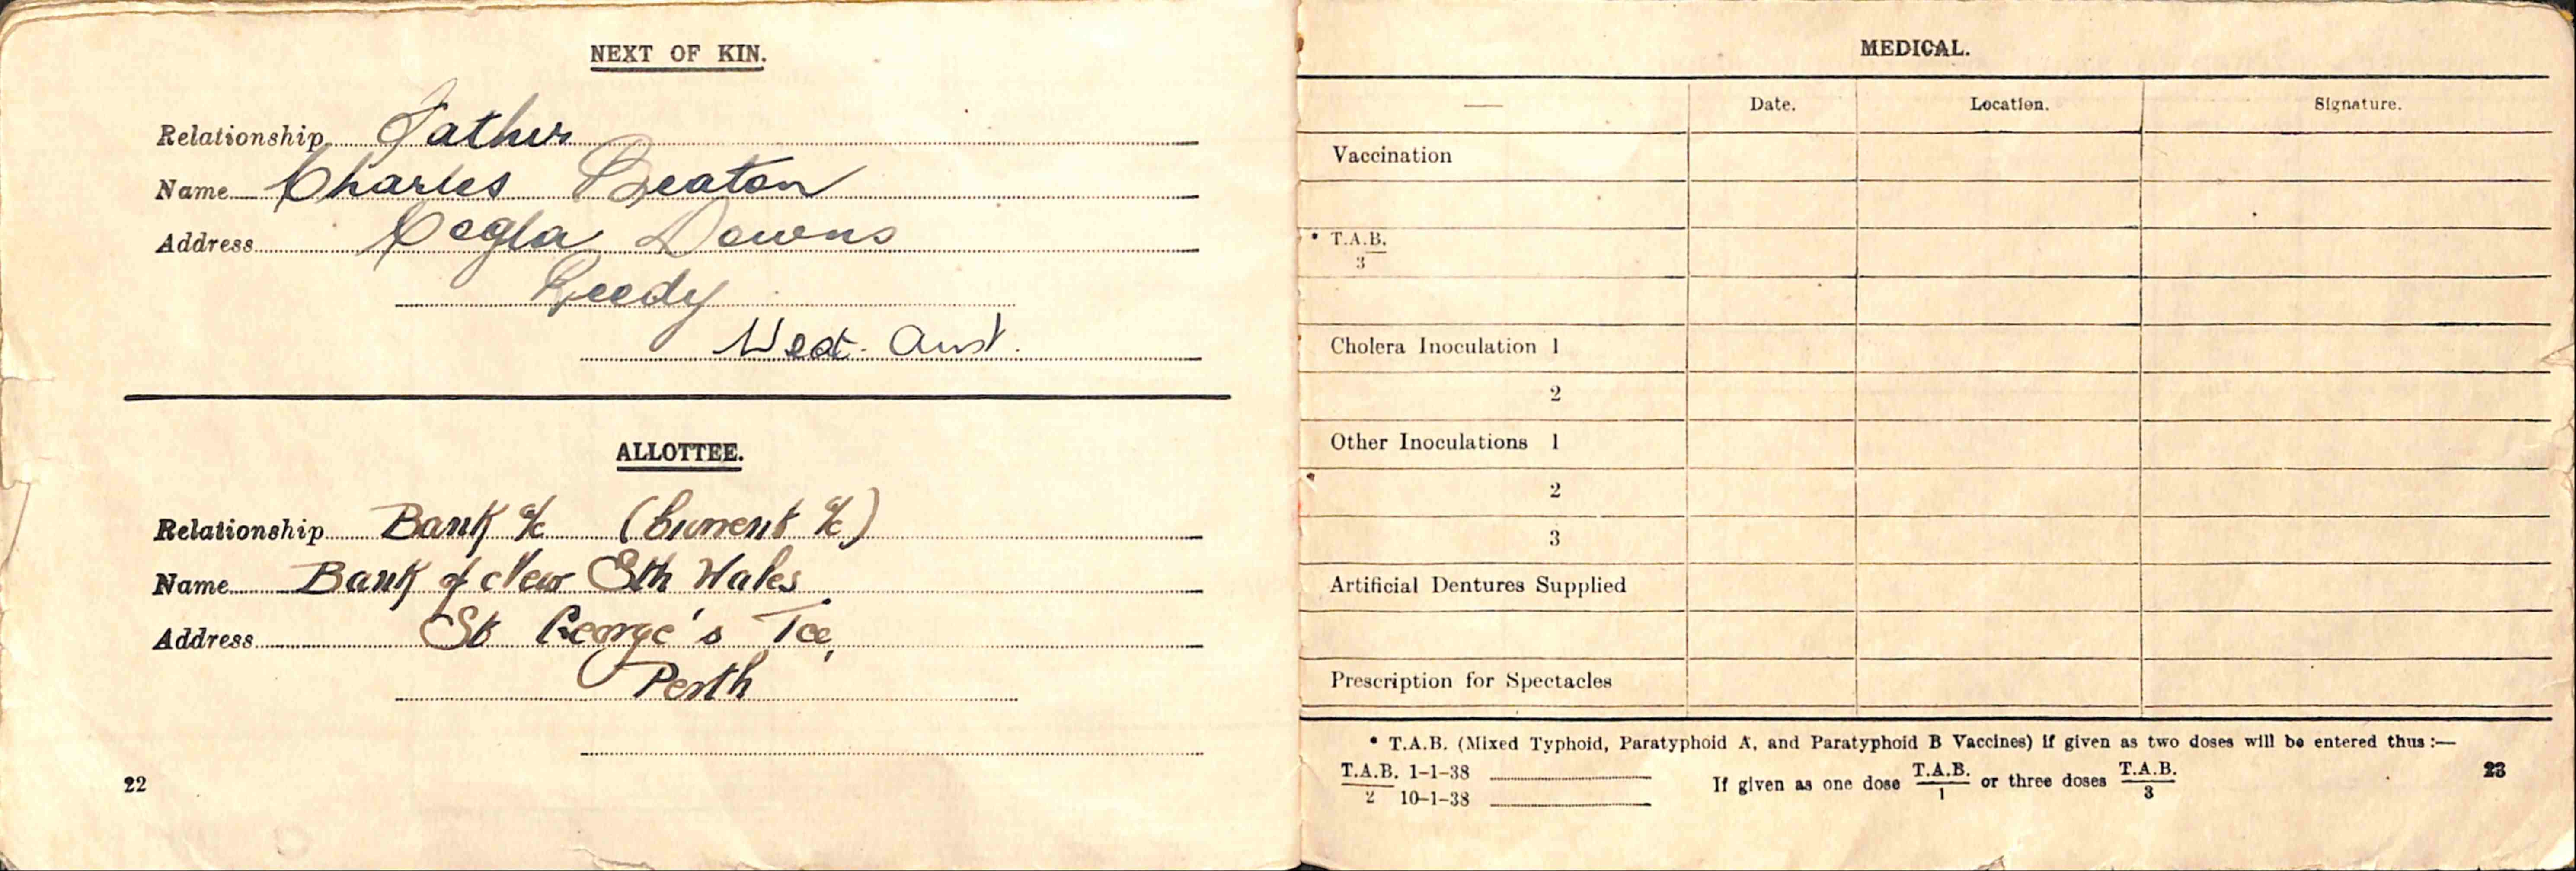 NEXT OF KIN.
Relationship Father
Name Charles Beaton
Address Cogla Downs
Reedy
West. Aust.
ALLOTTEE.
Relationship Bank a/c (Current a/c)
Name Bank of New Sth Wales
Address St George's Tce,
Perth
22
MEDICAL.
— Date. Location. Signature.
Vaccination
* T.A.B.
3
Cholera Inoculation 1
2
Other Inoculations 1
2
3
Artificial Dentures Supplied
Prescription for Spectacles
* T.A.B. (Mixed Typhoid, Paratyphoid A, and Paratyphoid B Vaccines) if given as two doses will be entered thus:—
T.A.B. 1-1-38
2 10-1-38
If given as one dose T.A.B. or three doses T.A.B.
1 3
23